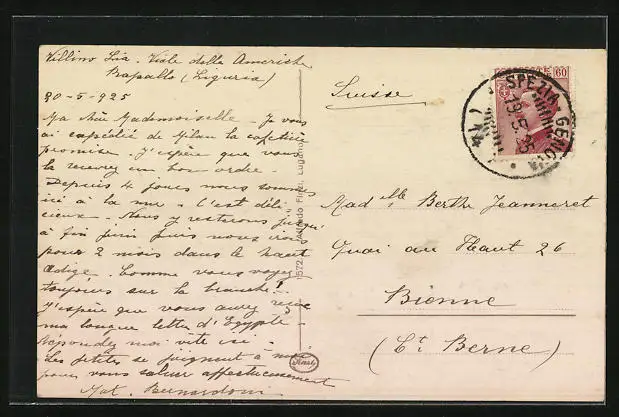 Villino Lia. Viale delle Americhe
Rapallo (Liguria)
20-5-925
Ma chère Mademoiselle - Je vous
ai expédié de Milan la cafetière
promise. J'espère que vous
la recevrez en bon ordre.
Depuis 4 jours nous sommes
ici à la mer. C'est déli
cieux. Nous y resterons jusqu'
à fin juin puis nous irons
pour 2 mois dans le haut
Adige. Comme vous voyez
toujours sur la branche!
J'espère que vous avez reçue
ma longue lettre d'Egypte.
Répondez moi vite ici -
Les petites se joignent à moi
pour vous saluer affectueusement
Mat. Bernardoni
1572 Alfredo Finzi, Lugano
Suisse
60
SPEZIA - GENOVA
19.5.25
Mad elle Berthe Jeanneret
Quai au Haut 26
Bienne
(Ct. Berne)